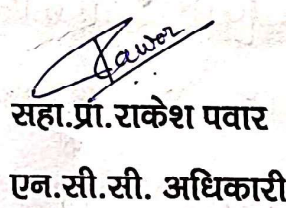 Pawar
सहा.प्रा.राकेश पवार
एन.सी.सी. अधिकारी